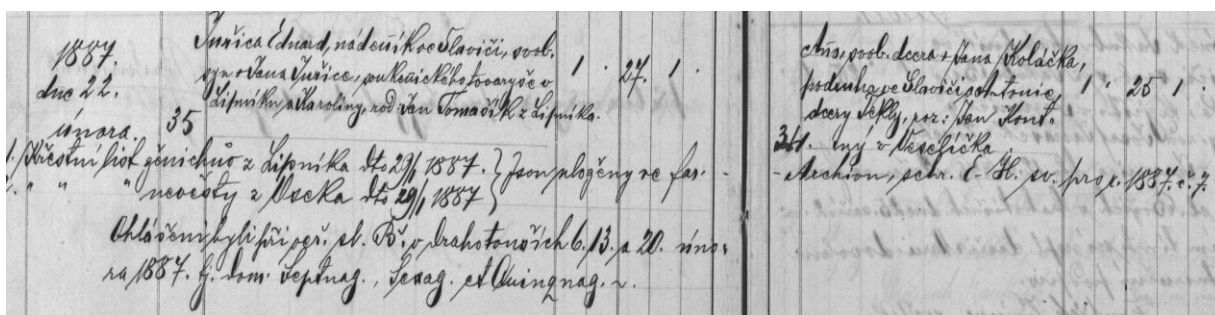 1887.
dne 22.
února. 35
Juřica Eduard, nádeník ve Slavíči, svob.
syn + Jana Juřice, soukenického tovaryše v
Lipníku, a Karoliny, roz: Jan Tomašík z Lipníka.
1 27. 1
Aňa, svob. dcera + Jana Koláčka,
podruha ve Slavíči a Antonie, 1 25 1
dcery Tekly, roz: Jan Kont-
34. ný z Veselíčka.
1. Křestní list ženichův z Lipníka dto 29/1 1887. } Jsou vloženy ve far-
" " nevěsty z Oseka dto 29/1 1887 }
Archivu, schr. E-H. sv. pro r. 1887. č. 7.
Ohlášeni byli při veř. sl. B. v Drahotouších 6. 13. a 20. úno-
ra 1887. tj. dom. Septuag., Sexag. et Quinquag.